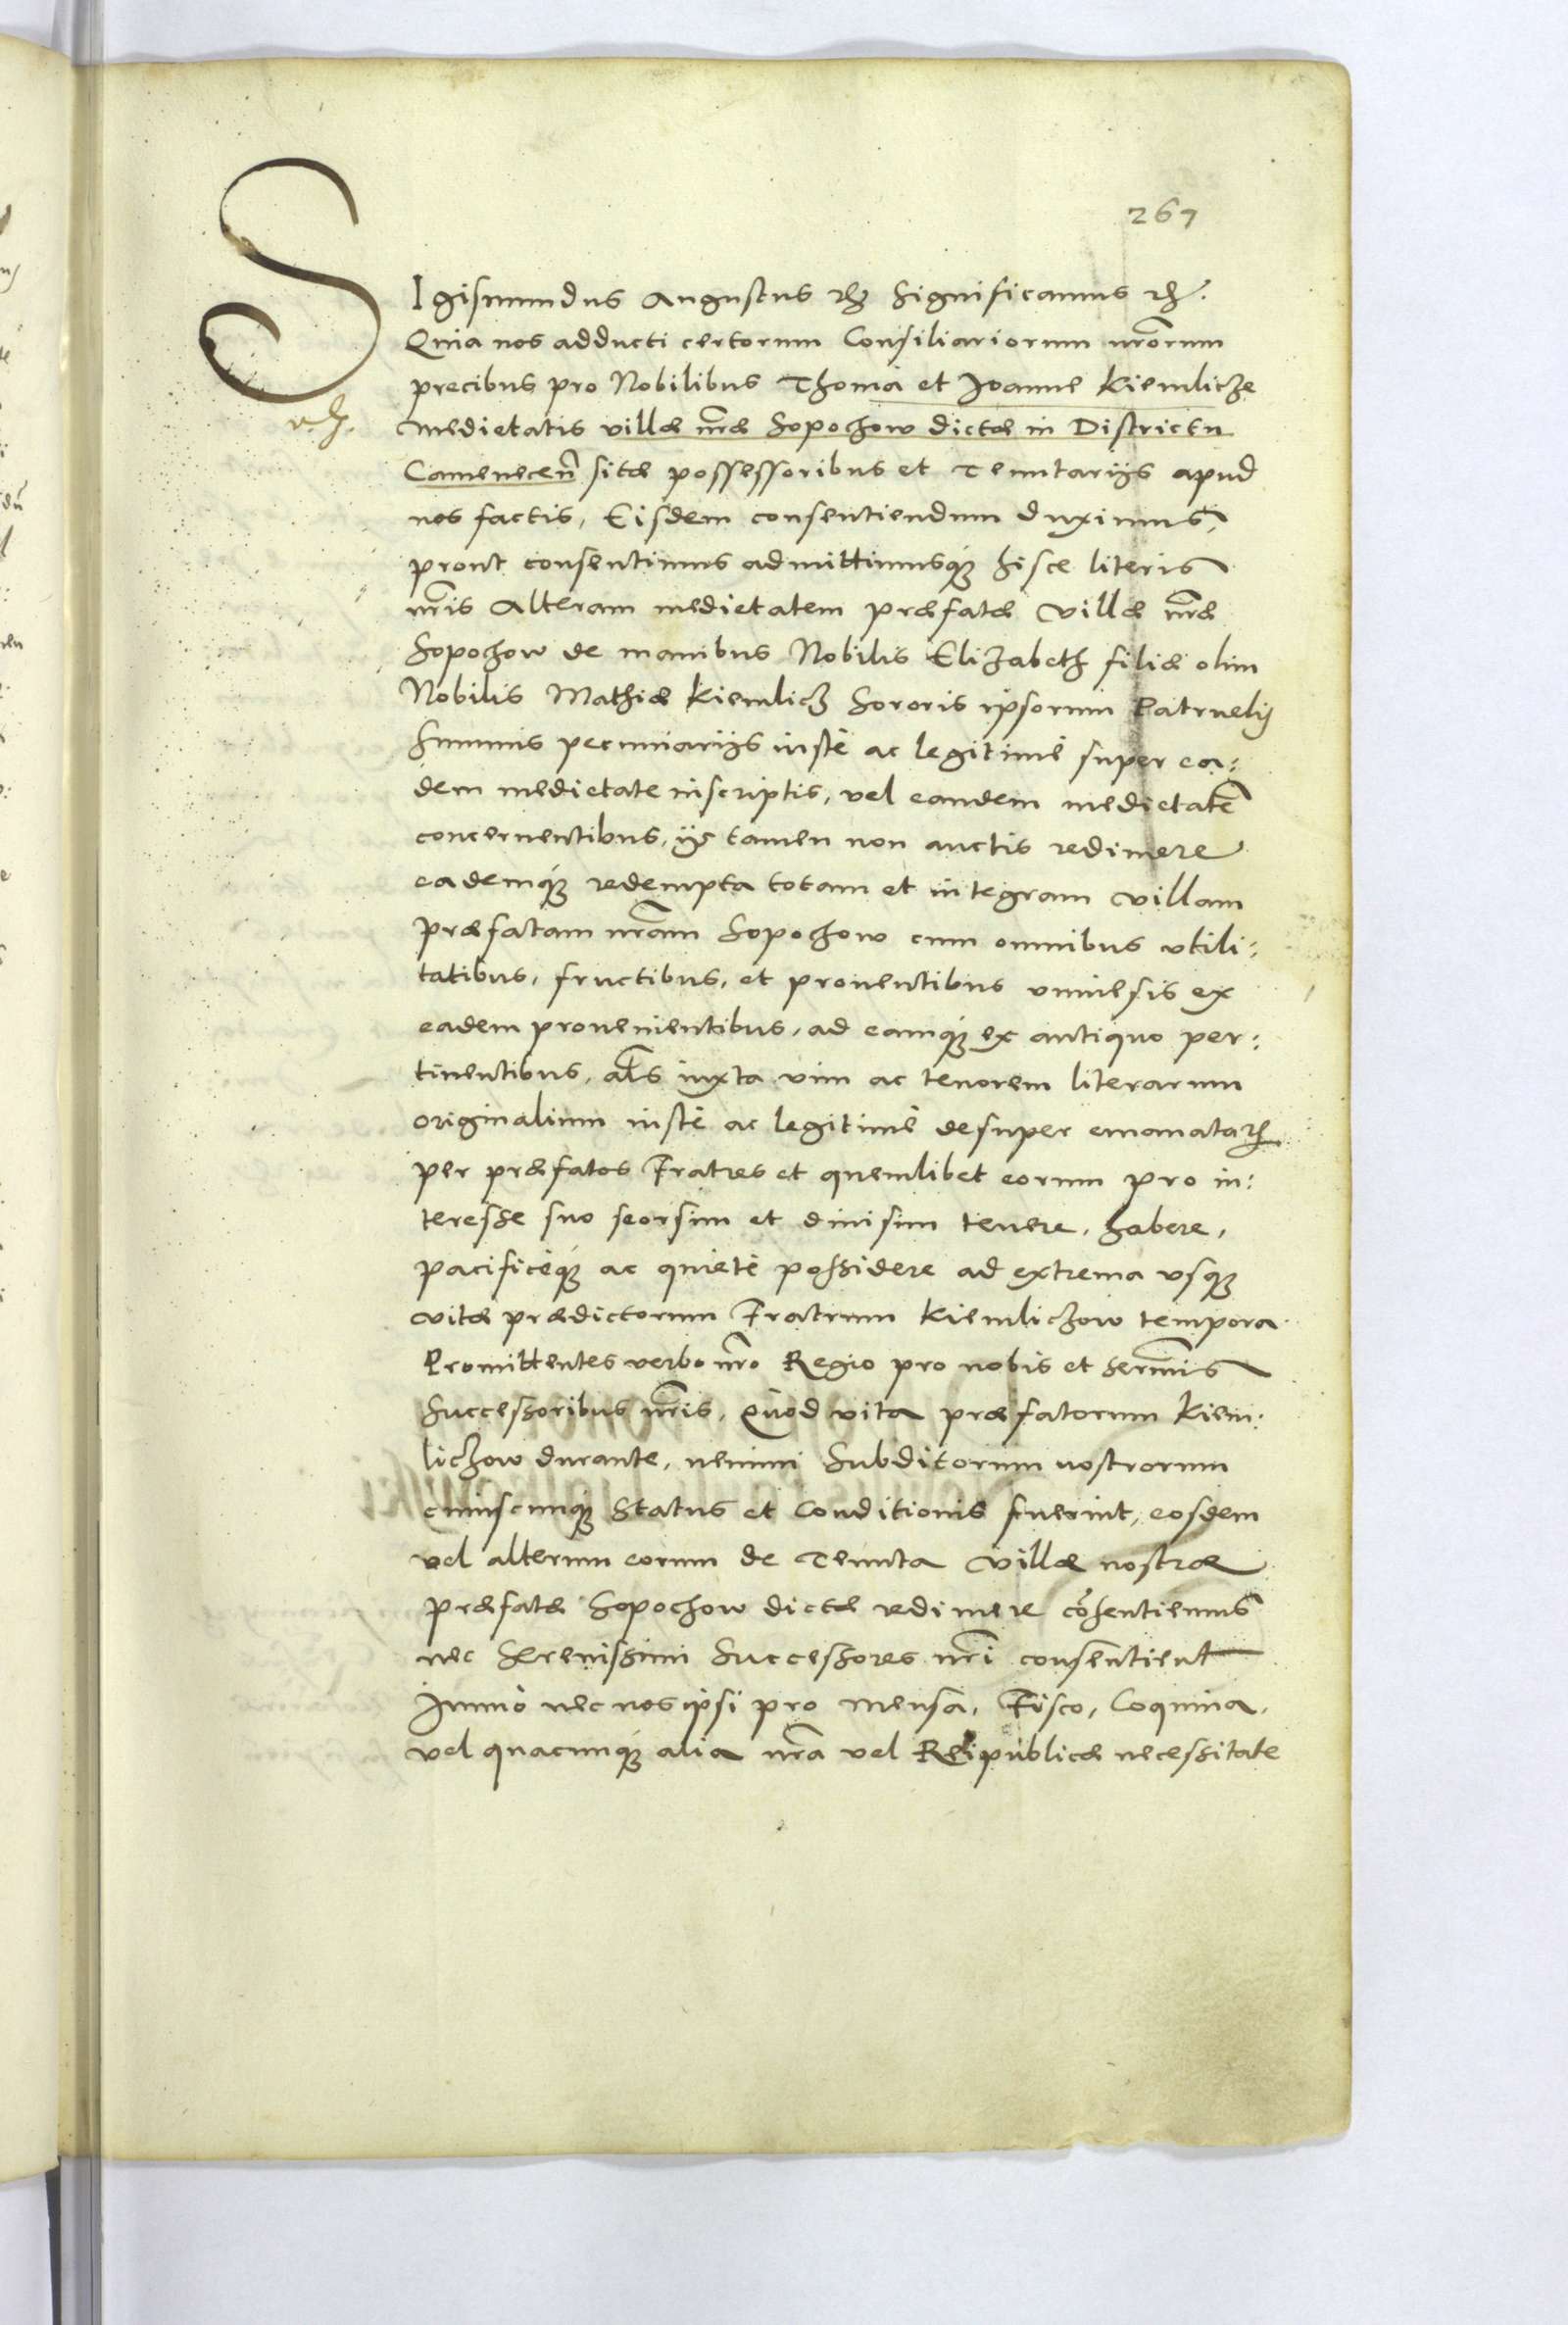 267
SIgismundus Augustus etc Significamus etc.
Quia nos adducti certorum Consiliariorum nr̃orum
precibus pro Nobilibus Thoma et Joanne Kiemlicze
medietatis villæ nr̃æ Sopochow dictæ in Districtu
Camenecen̄ sitæ possessoribus et Tenutarijs apud
nos factis, Eisdem consentiendum duximus,
prout consentimus admittimusq́ꝫ hisce literis
nr̃is Alteram medietatem præfatæ villæ nr̃æ
Sopochow de manibus Nobilis Elizabeth filiæ olim
Nobilis Mathiæ Kiemlicz Sororis ipsorum Patruelis
Summis pecuniarijs iustè ac legitimè super ea:
dem medietate inscriptis, vel eandem medietatē
concernentibus, ijs tamen non auctis redimere
eademq́ꝫ redempta totam et integram villam
præfatam nr̃am Sopochow cum omnibus vtili:
tatibus, fructibus, et prouentibus vniuersis ex
eadem prouenientibus, ad eamq́ꝫ ex antiquo per:
tinentibus, al̃s iuxta vim ac tenorem literarum
originalium iustè ac legitimè desuper emanataꝝ
per præfatos Fratres et quemlibet eorum pro in:
teresse suo seorsim et diuisim tenere, habere,
pacificèq́ꝫ ac quietè possidere ad extrema vsqꝫ
vitæ prædictorum Fratrum Kiemliczow tempora
Promittentes verbo nr̃o Regio pro nobis et Serm̃is
Successoribus nr̃is, Quòd vita præfatorum Kiem:
liczow durante, nemini Subditorum nostrorum
cuiuscunq́ꝫ Status et Conditionis fuerint, eosdem
vel alterum eorum de Tenuta villæ nostræ
præfatæ Sopochow dictæ redimere cõsentiemus
nec Serenissimi Successores nr̃i consentient
Immò nec nos ipsi pro Mensa, Fisco, Coquina,
vel quacunq́ꝫ alia nr̃a vel Reipublicæ necessitate